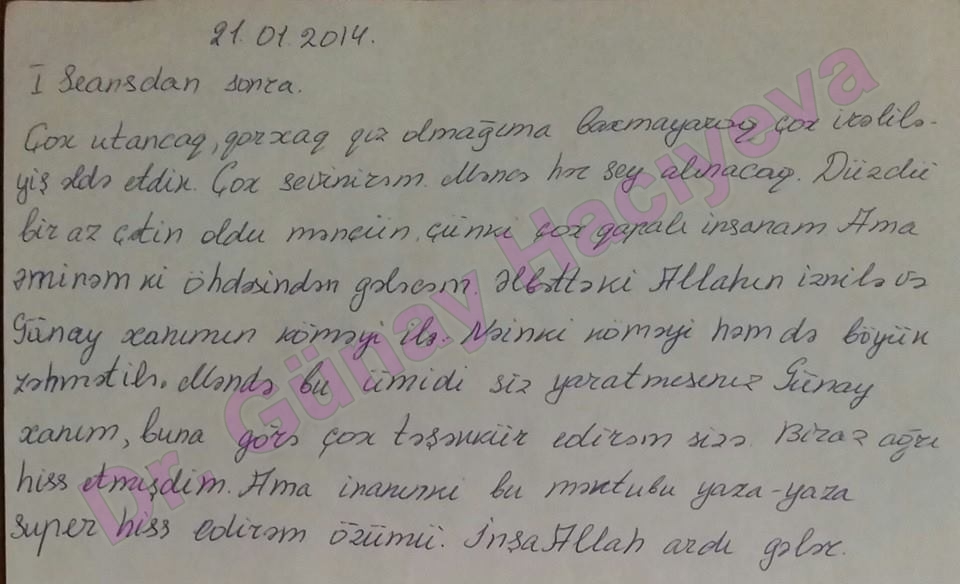 21.01.2014.
I Seansdan sonra.
Çox utancaq, qorxaq qız olmağıma baxmayaraq çox irəlilə-
yiş əldə etdik. Çox sevinirəm. Məncə hər şey alınacaq. Düzdü
bir az çətin oldu mənçün, çünki çox qapalı insanam Ama
əminəm ki öhdəsindən gələcəm. Əlbəttəki Allahın iznilə və
Günay xanımın köməyi ilə. Nəinki köməyi həm də böyük
zəhmətilə. Məndə bu ümidi siz yaratmısınız Günay
xanım, buna görə çox təşəkkür edirəm sizə. Biraz ağrı
hiss etmişdim. Ama inanınki bu məktubu yaza-yaza
super hiss edirəm özümü. İnşaAllah ardı gələr.
Dr. Günay Haciyeva